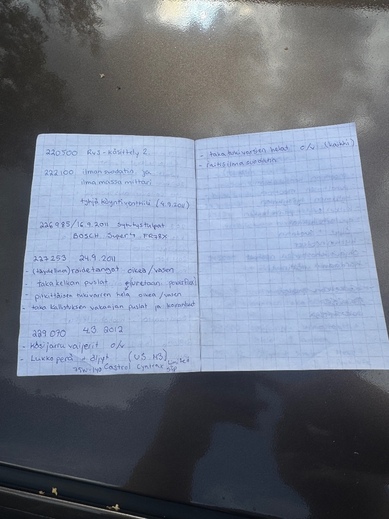 220500 RVS-käsittely 2.
222100 ilmansuodatin ja
ilmamassamittari.
tyhjäkäyntiventtiili (4.9.2011)
226985/16.9.2011 Sytytystulpat
BOSCH Super4 FR78X
227253 24.9.2011
raidetangot oikea/vasen
- takakelkan puslat
- pitkittäistukivarren hela oikea/vasen
- takakallistuksen vakaajan puslat ja
229070 4.3.2012
- Käsijarruvaijerit o/v
- Lukkoperä + öljyt
75W-140 Castrol Limited
Slip
- takatukivarsien helat o/v (kaikki)
- raitisilmasuodatin